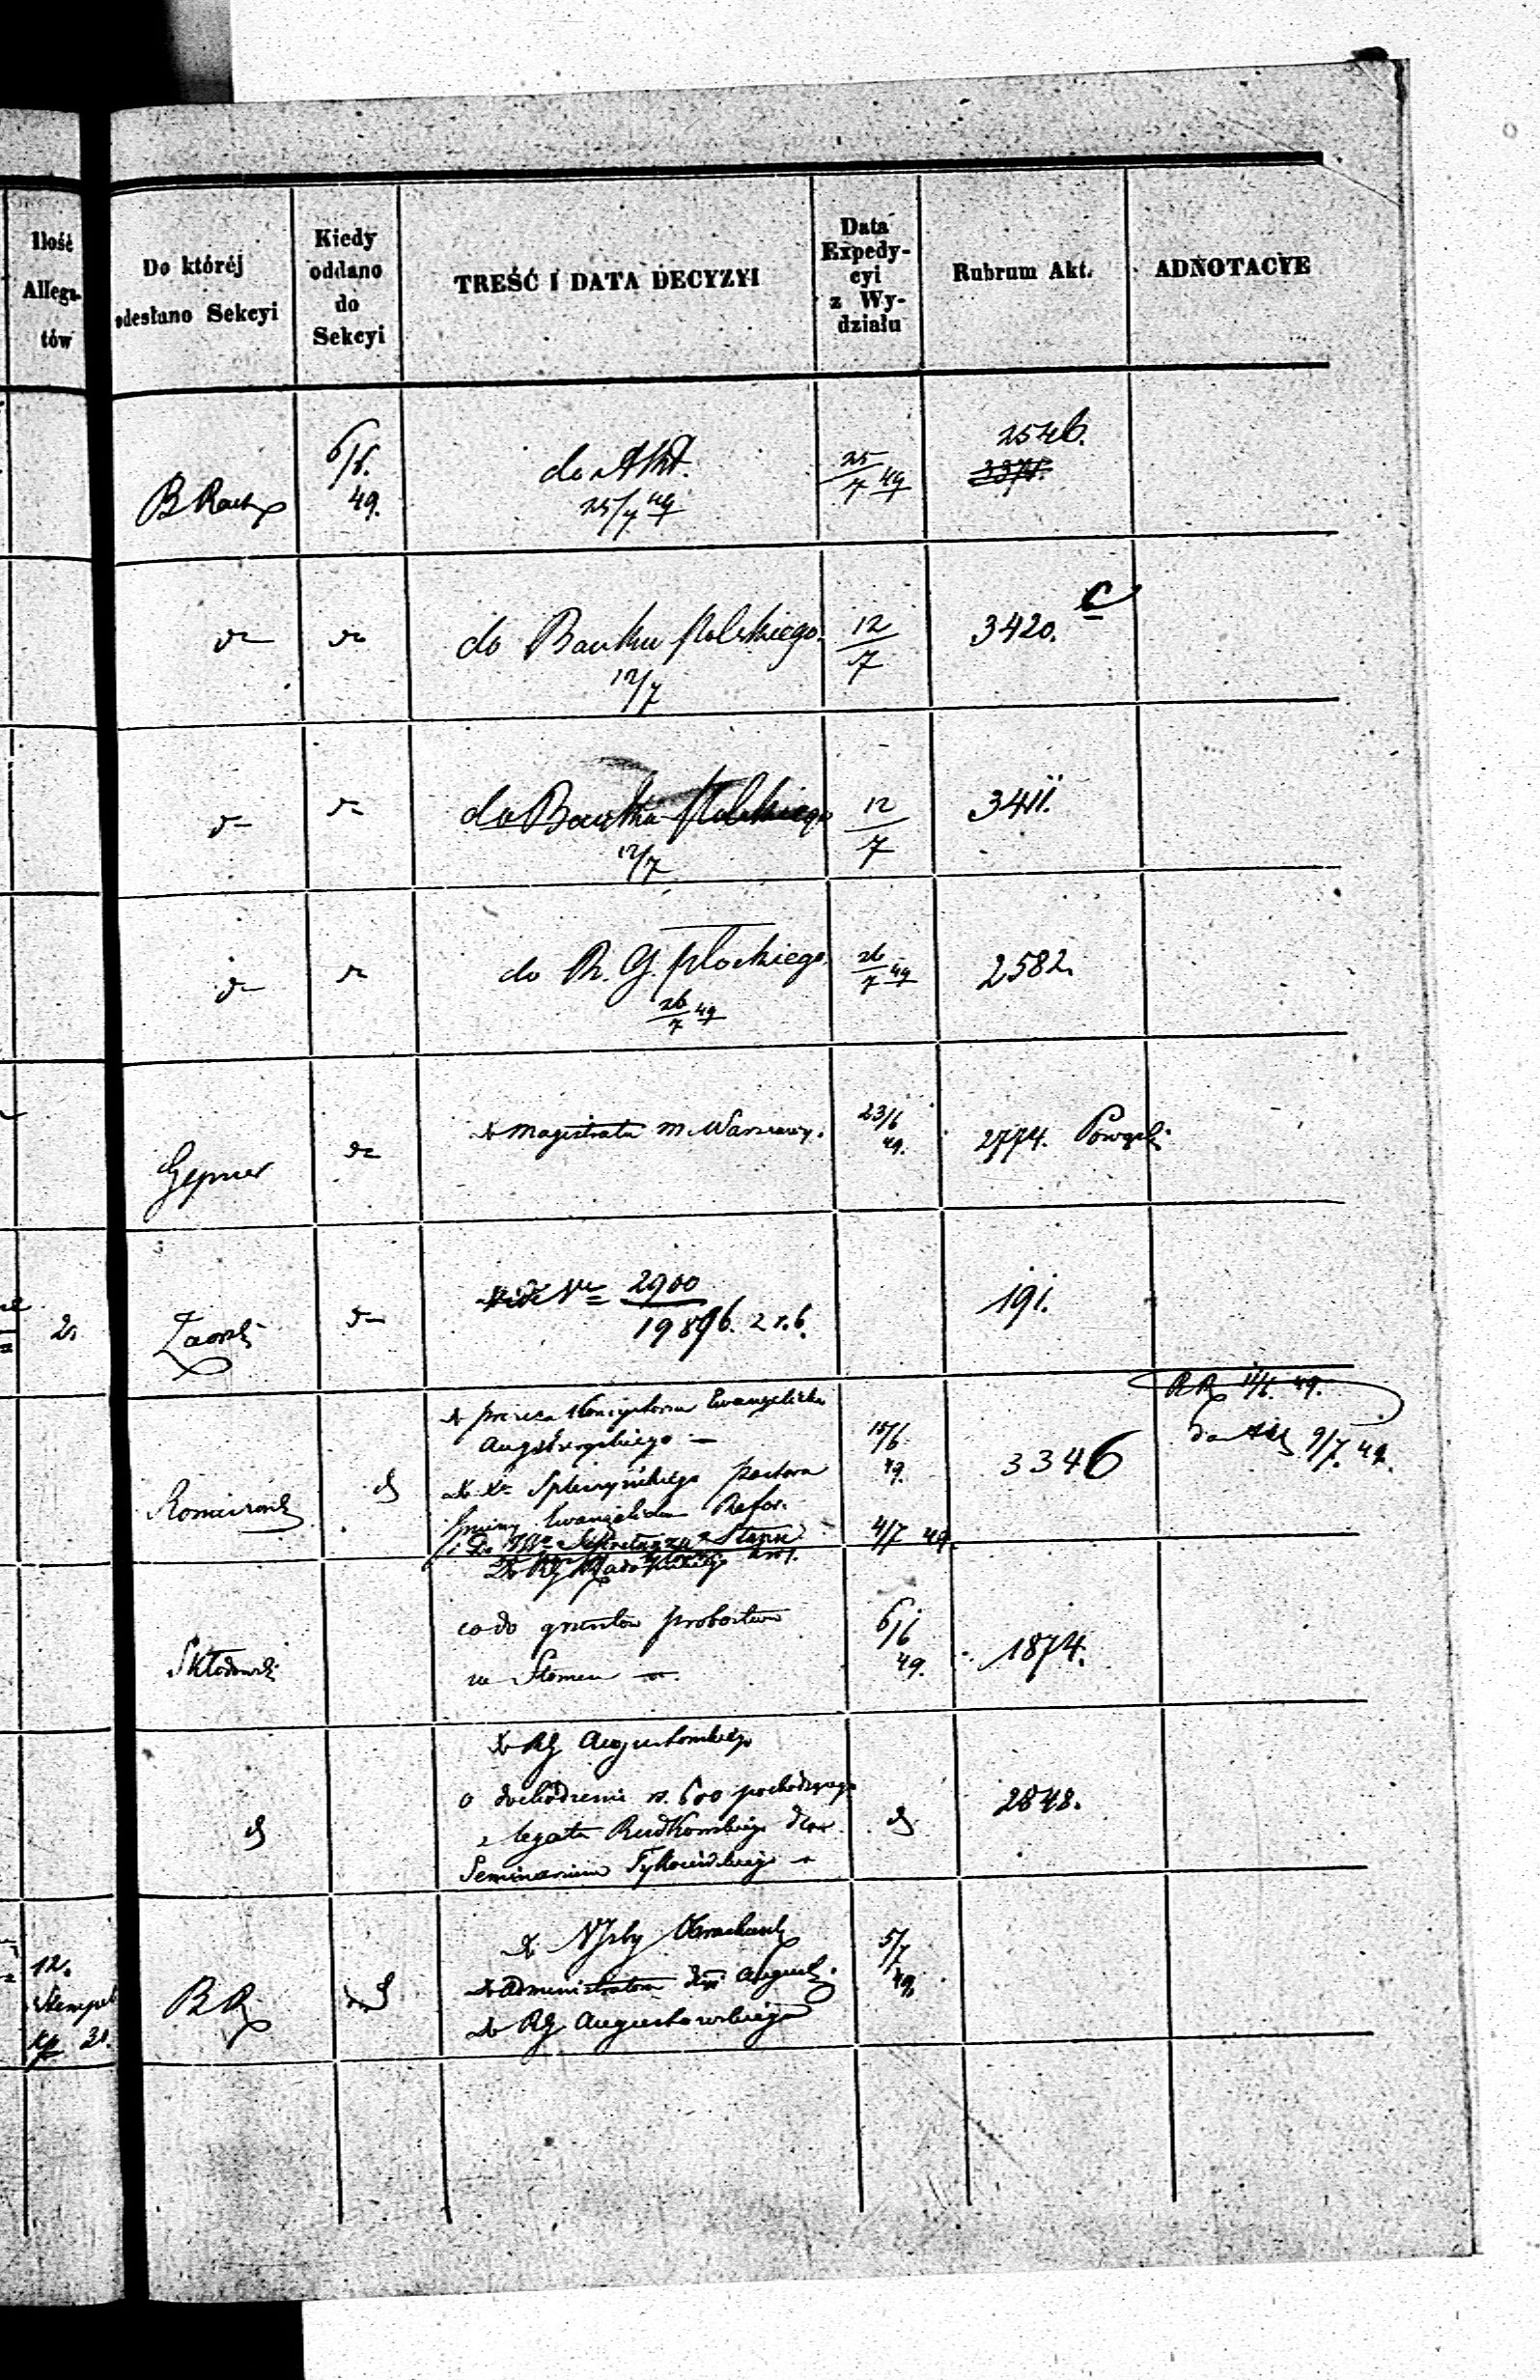 Ilość
Allega-
tów
Do któréj
odesłano Sekcyi
Kiedy
oddano
do
Sekcyi
TREŚĆ I DATA DECYZYI
Data
Expedy-
cyi
z Wy-
działu
Rubrum Akt.
ADNOTACYE
B Rach
6/6.
49.
do Akt.
25/7 49
25/7 49
2546.
do
do
do Banku Polskiego.
12/7
12/7
3420. C
do
do
do Banku Polskiego
12/7
12/7
3411.
do
do
do R. G. Płockiego.
26/7 49
26/7 49
2582.
Gepner
do
do Magistratu m. Warszawy.
23/6
49.
2774.
2.
do
vide Nr 2900/19896. z r. b.
191.
do Prezesa Konsystorza Ewangelicko
Augsburgskiego
Pastora
Gminy Ewangelicko Refor.
Do Sekretarza Stanu
15/6
49.
4/7 49.
3346
RR 11/6 49.
9/7 49.
Skłodowski
co do gruntów probostwa
w
6/6
49.
1874.
do
do RG Augustowskiego
o dochodzenie rs. 600 pochodzącego
z legatu Rudkowskiego dla
Seminarium Tykocińskiego
do
2848.
12.
Stempel
kp 30.
BR
do
do Izby Obrachunk
do Administratora August.
do RG Augustowskiego
5/7
49.